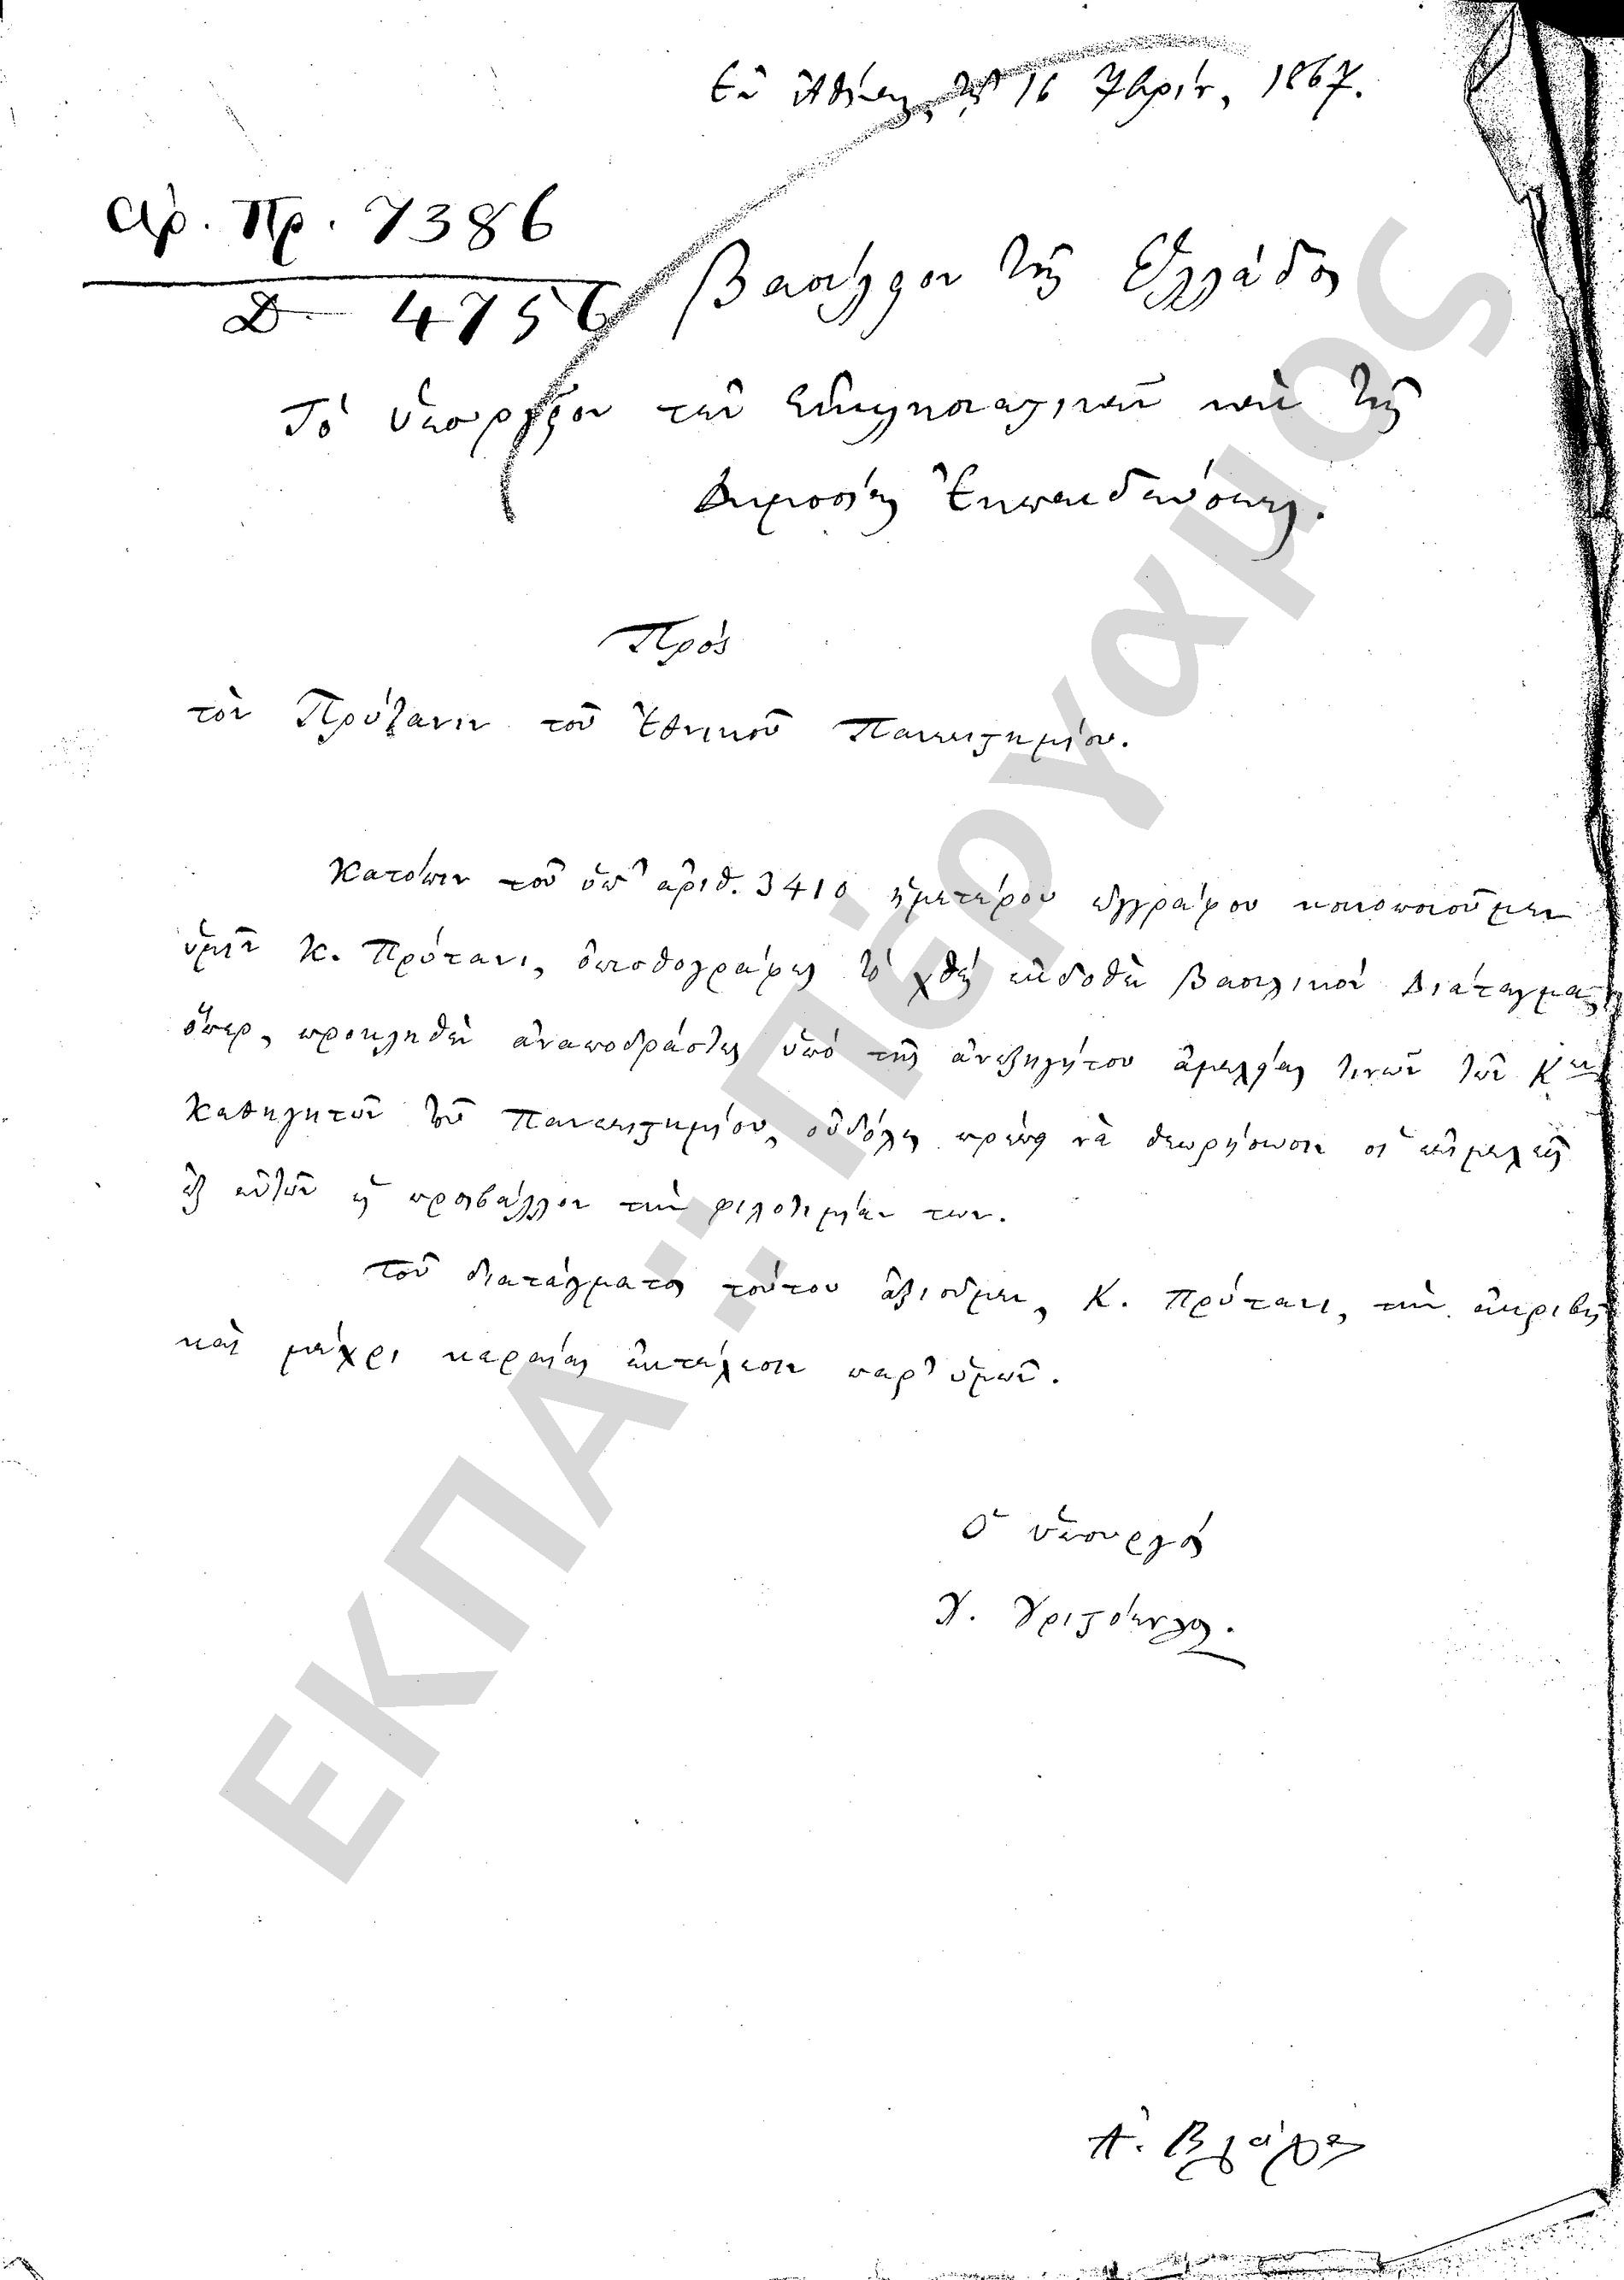 Ἐν Ἀθήναις, τῇ 16 7βρίου, 1867.
Ἀρ. Πρ. 7386
Δ 4756
Βασίλειον τῆς Ἑλλάδος
Τὸ Ὑπουργεῖον τῶν Ἐκκλησιαστικῶν καὶ τῆς
Δημοσίας Ἐκπαιδεύσεως.
Πρὸς
τὸν Πρύτανιν τοῦ Ἐθνικοῦ Πανεπιστημίου.
Κατόπιν τοῦ ὑπ' ἀριθ. 3410 ἡμετέρου ἐγγράφου κοινοποιοῦμεν
ὑμῖν Κ. Πρύτανι, ὀπισθογράφως τὸ χθὲς ἐκδοθὲν Βασιλικὸν Διάταγμα,
ὅπερ, προκληθὲν ἀναποδράστως ὑπὸ τῆς ἀνεξηγήτου ἀμελείας τινῶν τῶν Κων
Καθηγητῶν τοῦ Πανεπιστημίου, οὐδόλως πρέπει νὰ θεωρήσωσιν οἱ ἐπιμελεῖς
ἐξ αὐτῶν ὡς προσβάλλον τὴν φιλοτιμίαν των.
Τοῦ διατάγματος τούτου ἀξιοῦμεν, Κ. Πρύτανι, τὴν ἀκριβῆ
καὶ μέχρι κεραίας ἐκτέλεσιν παρ' ὑμῶν.
Ὁ Ὑπουργὸς
Χ. Χριστόπουλος.
Α. Βλάχος
ΕΚΠΑ: Πέργαμος